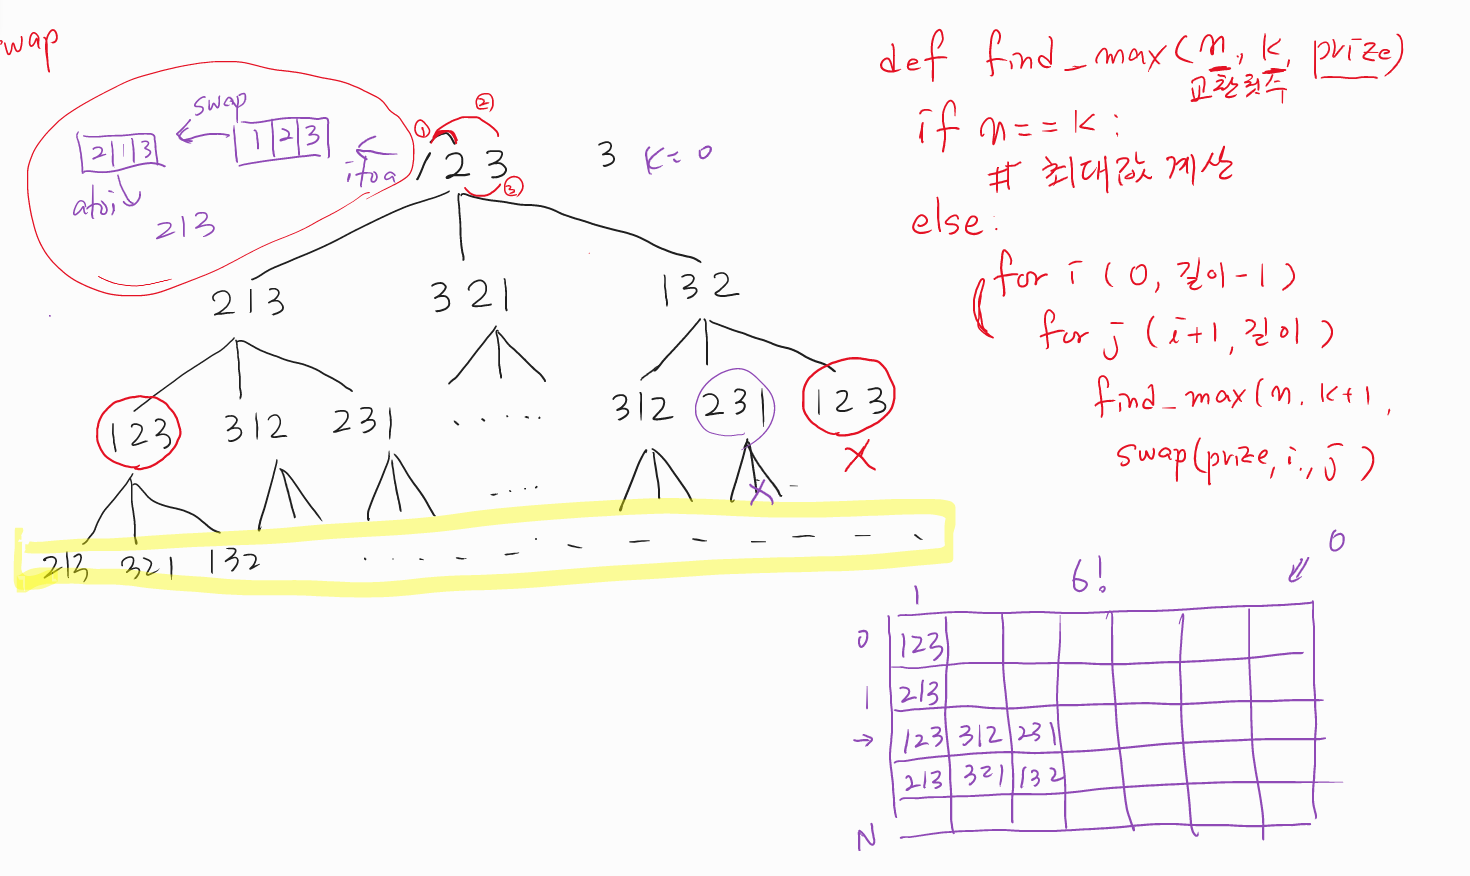 swap
swap
213
123
itoa
atoi
213
① ② ③
123
3 K=0
213 321 132
123 312 231 ..... 312 231 123
X
....
X
213 321 132
def find_max(n, k, prize)
교환횟수
if n==k:
# 최대값 계산
else:
for i (0, 길이-1)
for j (i+1, 길이)
find_max(n. k+1,
swap(prize, i., j)
0
1 6!
0 123
1 213
→ 123 312 231
213 321 132
N